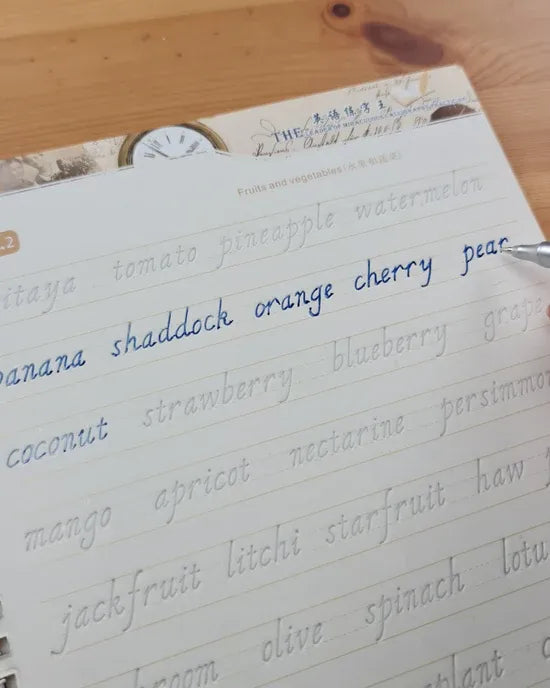 英语练字王
THE
Fruits and vegetables(水果和蔬菜)
.2
itaya tomato pineapple watermelon
banana shaddock orange cherry pear
coconut strawberry blueberry grape
mango apricot nectarine persimmon
jackfruit litchi starfruit haw
room olive spinach lotu
plant